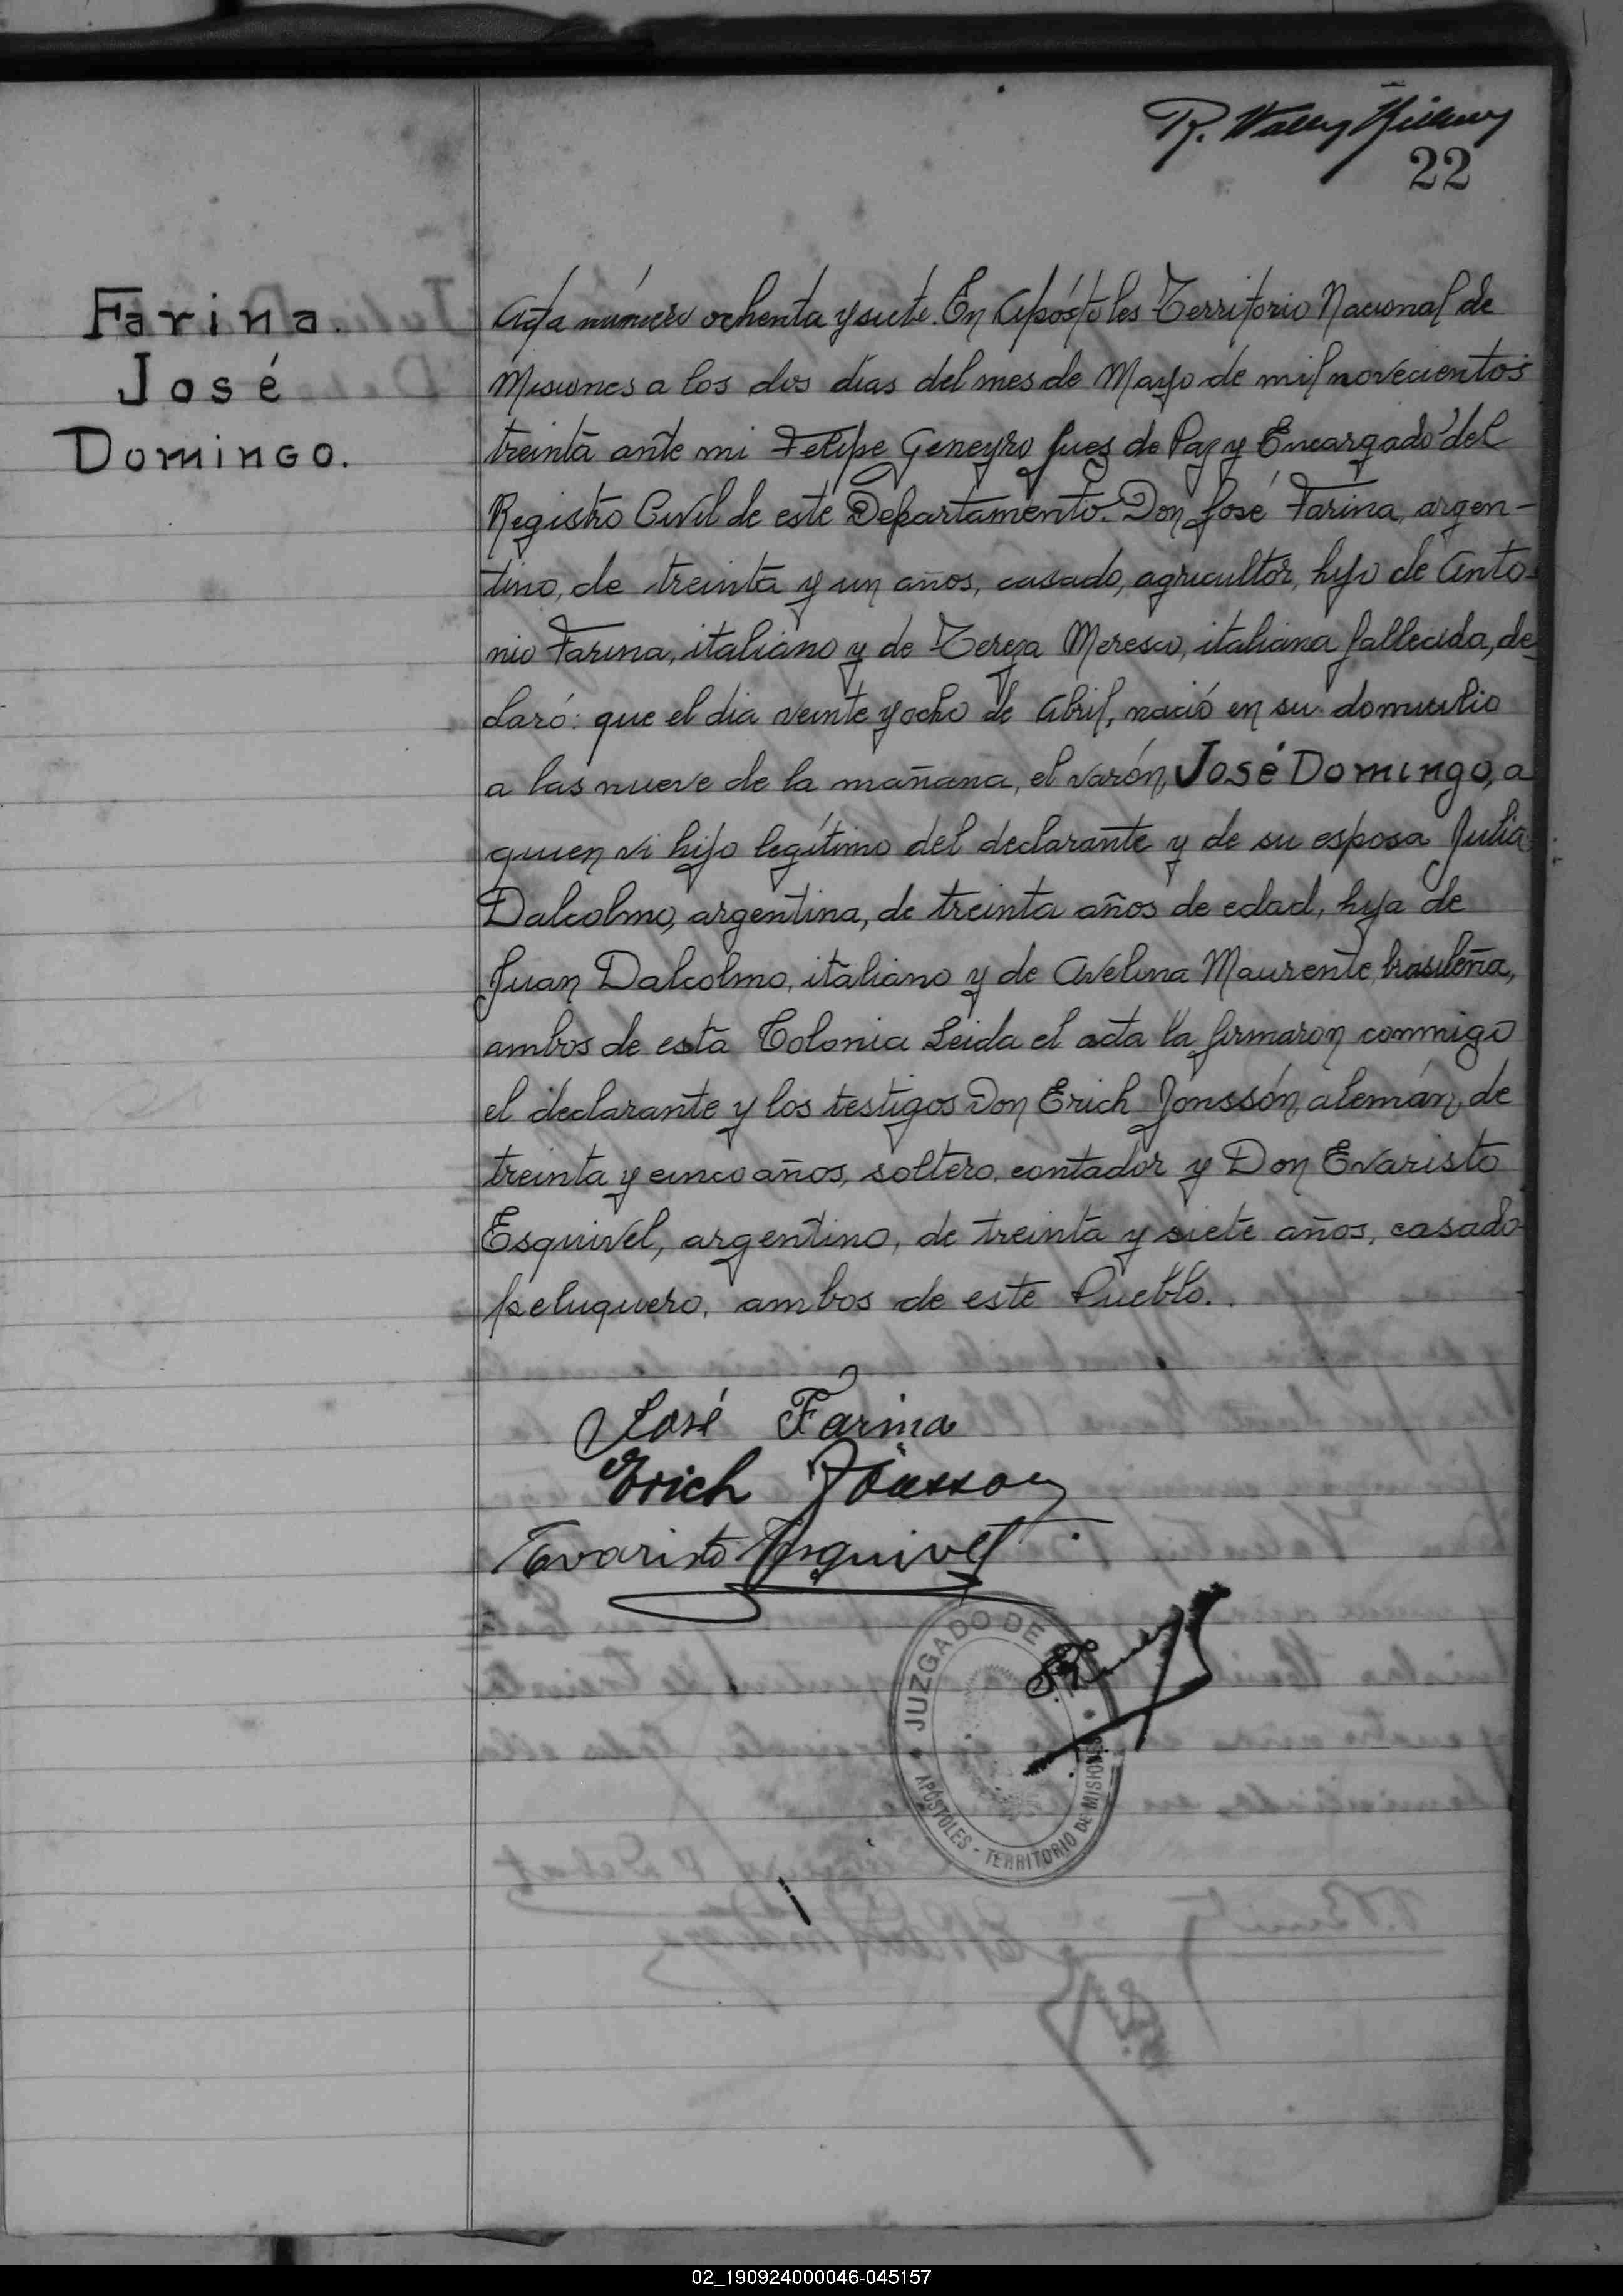 22
Farina.
José
Domingo.
Acta número ochenta y siete. En Apóstoles Territorio Nacional de
Misiones a los dos días del mes de Mayo de mil novecientos
treinta ante mi Felipe Geneyro Juez de Paz y Encargado del
Registro Civil de este Departamento. Don José Farina, argen-
tino, de treinta y un años, casado, agricultor, hijo de Anto-
nio Farina, italiano y de Tereza Meresco, italiana fallecida, de-
claró: que el dia veinte y ocho de Abril, nació en su domicilio
a las nueve de la mañana, el varón, José Domingo, a
quien vi hijo legítimo del declarante y de su esposa Julia
Dalcolmo, argentina, de treinta años de edad, hija de
Juan Dalcolmo, italiano y de Avelina Maurente, brasileña,
ambos de esta Colonia Leida el acta la firmaron conmigo
el declarante y los testigos Don Erich Jónssón, alemán, de
treinta y cinco años, soltero, contador y Don Evaristo
Esquivel, argentino, de treinta y siete años, casado
peluquero, ambos de este Pueblo.
José Farina
Erich Jónsson
Evaristo Esquivel
JUZGADO DE
APÓSTOLES - TERRITORIO DE MISIONES
02_190924000046-045157